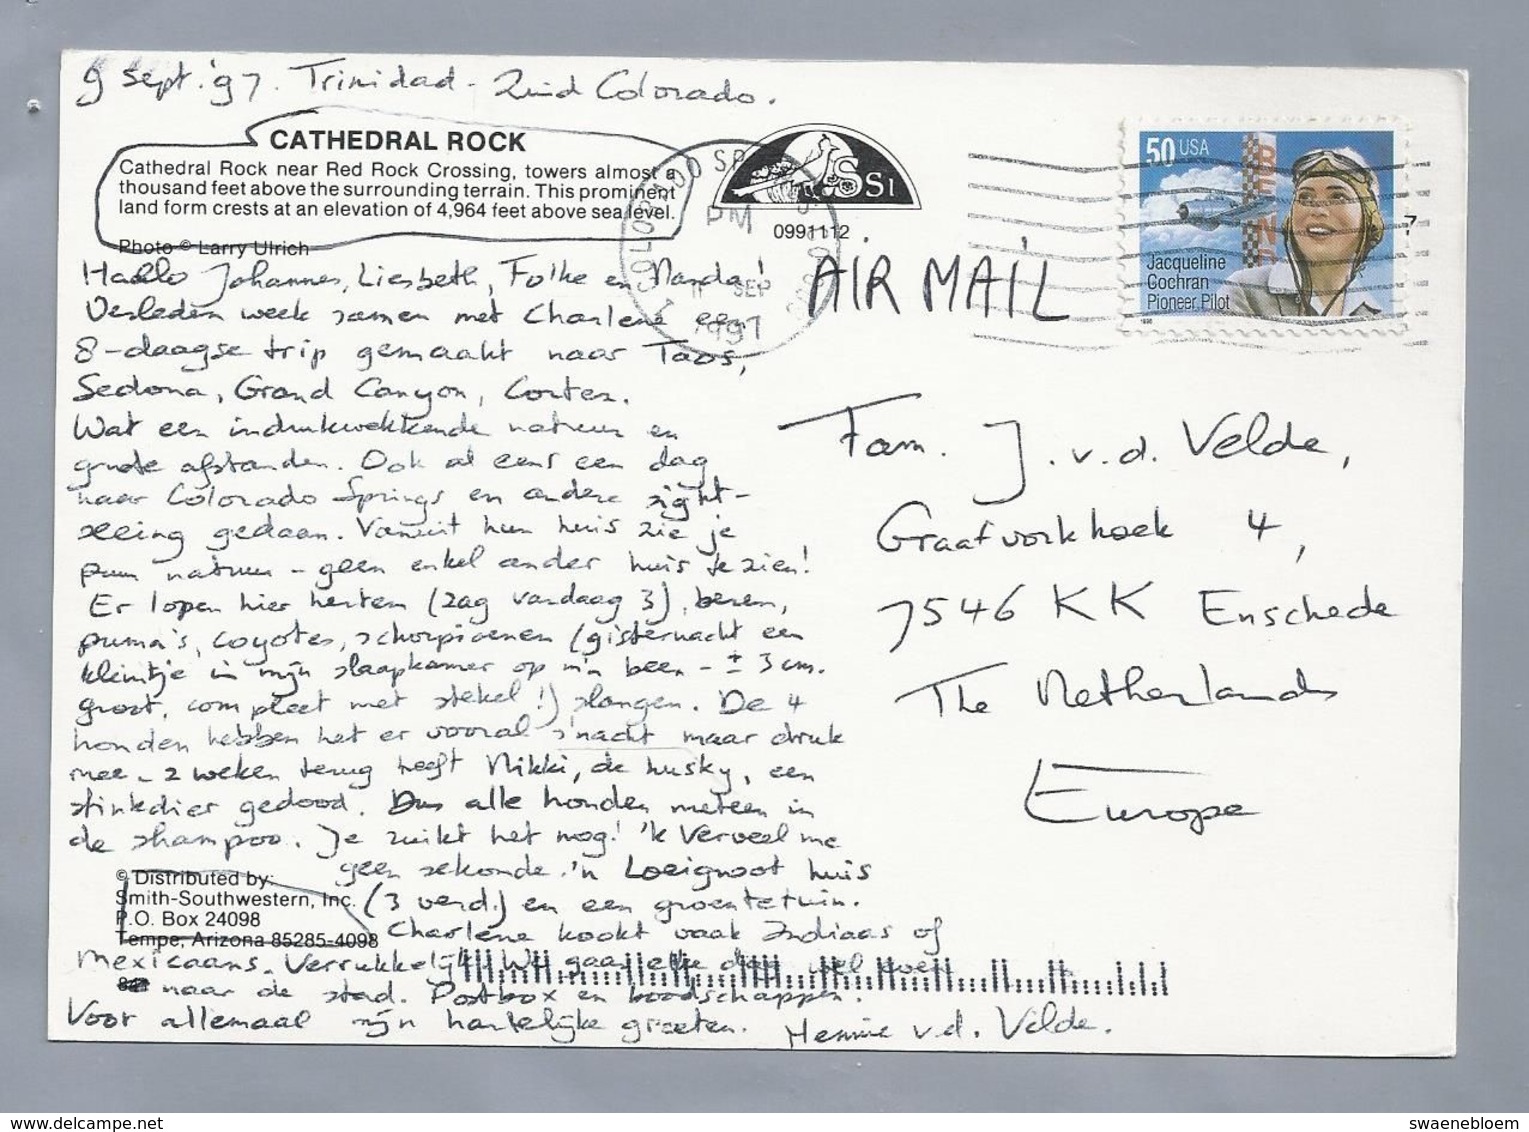 9 Sept. '97. Trinidad - Zuid Colorado.
CATHEDRAL ROCK
Cathedral Rock near Red Rock Crossing, towers almost a
thousand feet above the surrounding terrain. This prominent
land form crests at an elevation of 4,964 feet above sea level.
Photo © Larry Ulrich
SSI
0991112
COLORADO SP
PM
11 SEP
1997
AIR MAIL
50 USA
BENDIX
Jacqueline
Cochran
Pioneer Pilot
1996
Hallo Johannes, Liesbeth, Folke en Nanda!
Verleden week samen met Charlene een
8-daagse trip gemaakt naar Taos,
Sedona, Grand Canyon, Cortez.
Wat een indrukwekkende natuur en
grote afstanden. Ook al eens een dag
naar Colorado Springs en andere sight-
seeing gedaan. Vanuit hun huis zie je
puur natuur - geen enkel ander huis te zien!
Er lopen hier herten (zag vandaag 3), beren,
puma's, coyotes, schorpioenen (gisternacht een
kleintje in mijn slaapkamer op m'n been - ± 3 cm.
groot, compleet met stekel!) slangen. De 4
honden hebben het er vooral 's nacht maar druk
mee - 2 weken terug heeft Nikki, de husky, een
stinkdier gedood. Dus alle honden meteen in
de shampoo. Je ruikt het nog! 'k Verveel me
geen sekonde. 'n Loeigroot huis
(3 verd.) en een groentetuin.
Charlene kookt vaak Indiaas of
Mexicaans. Verrukkelijk! We gaan elke dag wel even
naar de stad. Postbox en boodschappen.
Voor allemaal mijn hartelijke groeten. Hennie v.d. Velde.
© Distributed by:
Smith-Southwestern, Inc.
P.O. Box 24098
Tempe, Arizona 85285-4098
Fam. J. v.d. Velde,
Graafvorkhoek 4,
7546 KK Enschede
The Netherlands
Europe
www.delcampe.net
swaenebloem